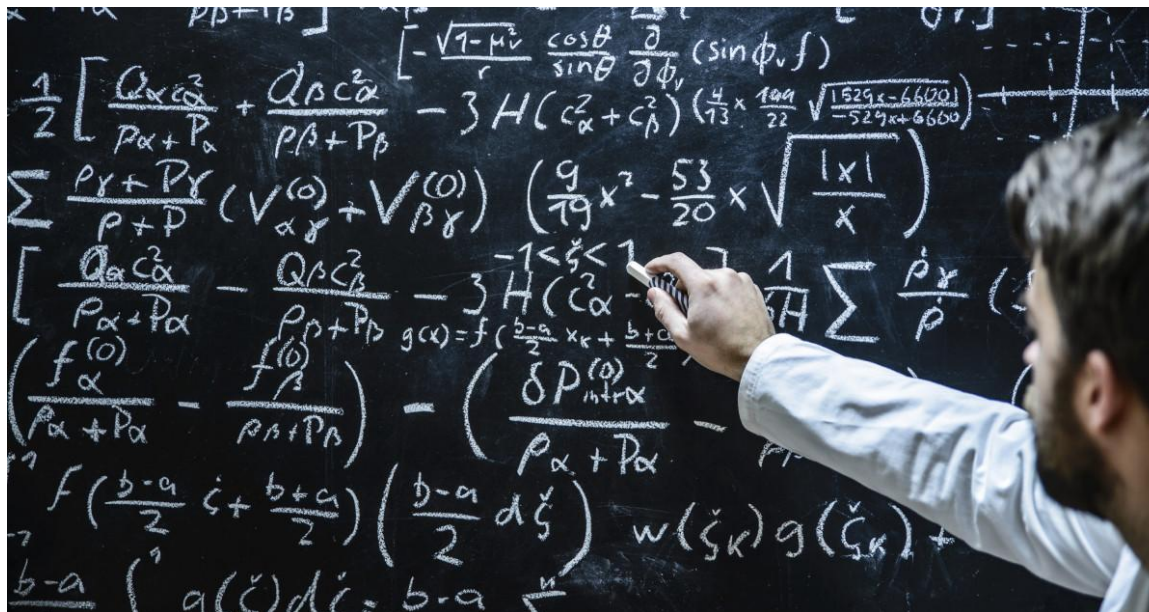 [-√(1-μ²ᵥ)/r cosθ/sinθ ∂/∂ϕᵥ (sinϕᵥ f)
1/2 [Qαc²α/ρα+Pα + Qβc²α/ρβ+Pβ - 3H(c²α+c²β) (4/13 x 199/22 √|529x-6600|/-529x+6600)
Σ ργ+Pγ/ρ+P (V⁽⁰⁾αγ + V⁽⁰⁾βγ) (9/19 x² - 53/20 x √|x|/x)
-1<ξ̌<1
[Qαc²α/ρα+Pα - Qβc²β/ρβ+Pβ - 3H(c²α 1/H Σ ργ/ρ (
g(x)=f(b-a/2 xκ + b+a/2
(f⁽⁰⁾α/ρα+Pα - f⁽⁰⁾β/ρβ+Pβ) - (δP⁽⁰⁾intrα/ρα+Pα -
f(b-a/2 ξ̌ + b+a/2)(b-a/2 dξ̌) w(ξ̌κ)g(ξ̌κ) +
b-a ( g(ξ̌)dξ̌ = b-a Σ